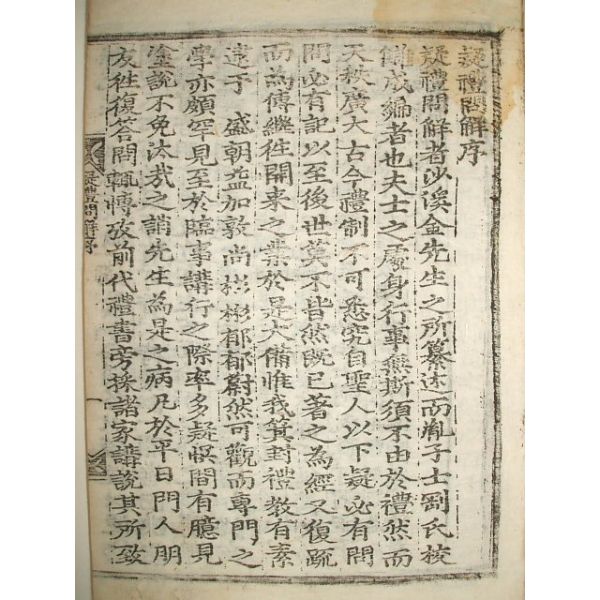 疑禮問解序
疑禮問解者沙溪金先生之所纂述而胤子士剛氏校
讎成編者也夫士之處身行事無斯須不由於禮然而
天秩廣大古今禮制不可悉究自聖人以下疑必有問
問必有記以至後世莫不皆然旣已著之為經又復疏
而為傳繼徃開來之業於是大備惟我箕封禮敎有素
逮于 盛朝益加敦尚彬彬郁郁蔚然可觀而專門之
學亦頗罕見至於臨事講行之際率多疑悞間有臆見
塗說不免汰哉之誚先生為是之病凡於平日門人朋
友徃復答問輒博攷前代禮書旁採諸家講說其所致
疑禮問解序
一